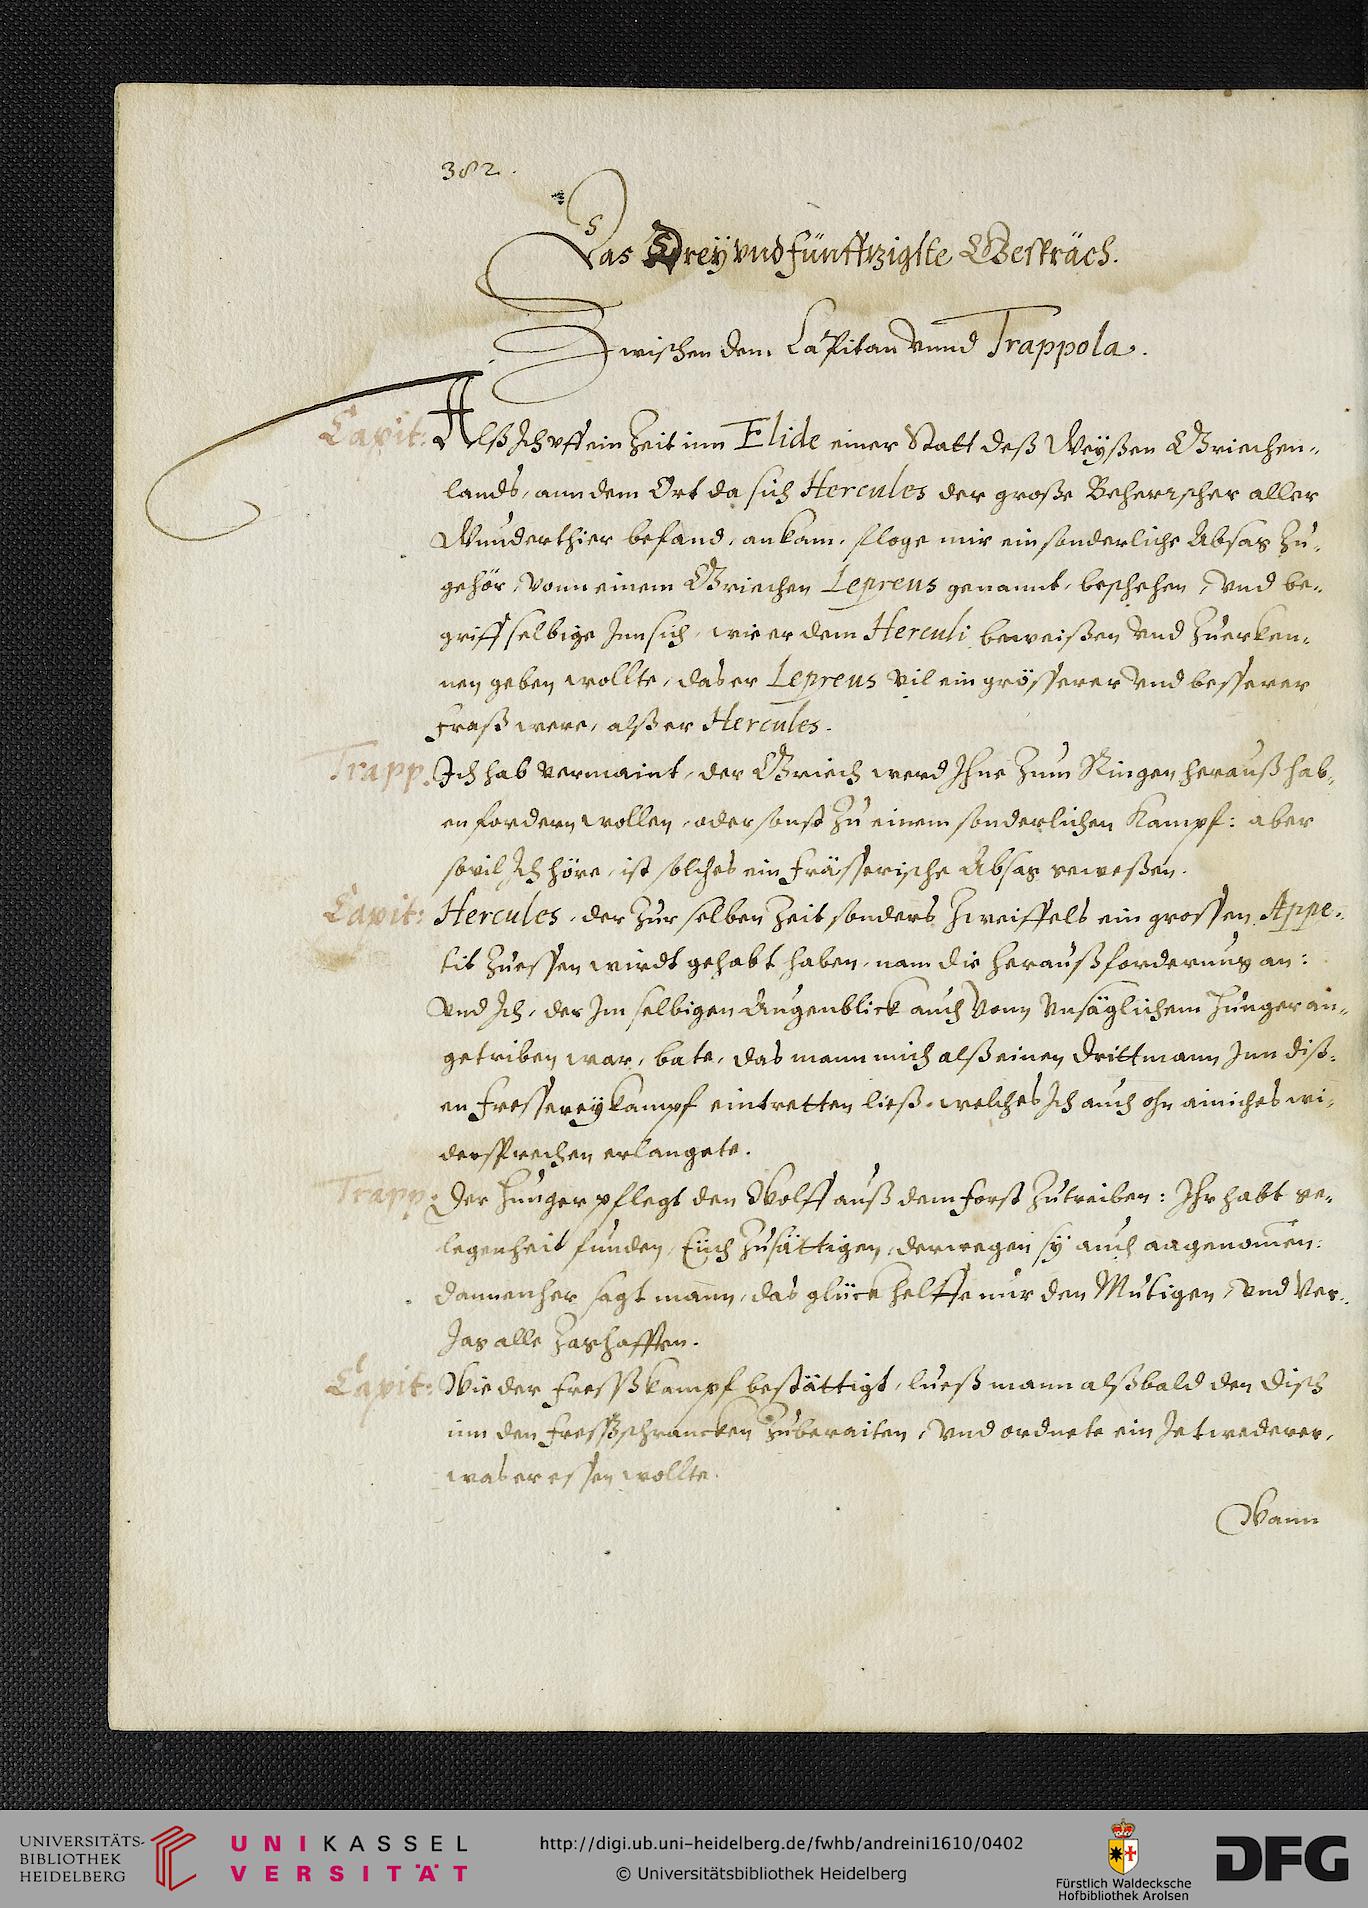 382.
Das Dreyvndfünfftzigste Gespräch.
Zwischen dem Capitan vnnd Trappola.
Capit: Alß Ich vff ein Zeit inn Elide einer Statt deß Weyßen Griechen-
lands, ann dem Ort da sich Hercules der große Beherrscher aller
Wunderthier befand, ankam, floge mir ein sonderliche Absag zu-
gehör, vonn einem Griechen Lepreus genannt, beschehen, vnd be-
griff selbige Inn sich, wie er dem Herculi beweißen vnd zuerken-
nen geben wollte, das er Lepreus vil ein grösserer vnd besserer
Fraß were, alß er Hercules.
Trapp. Ich hab vermaint, der Griech werd Ihne zum Ringen herauß hab-
en fordern wollen, oder sonst zu einem sonderlichen Kampf: aber
sovil Ich höre, ist solches ein Frässerische Absag geweßen.
Capit: Hercules, der zur selben Zeit sonders Zweiffels ein grossen Appe-
tit zuessen wirdt gehabt haben, nam die heraußforderung an:
vnd Ich, der Im selbigen Augenblick auch vonn vnsäglichem hunger an-
getriben war, bate, das mann mich alß einen Drittmann Inn diß-
en Fressereykampf eintretten ließ, welches Ich auch ohn ainiches wi-
dersprechen erlangete.
Trapp: Der hunger pflegt den Wolff auß dem Forst zutreiben: Ihr habt ge-
legenheit funden, Euch zusättigen, derwegen sy auch angenomen:
dannenher sagt mann, das glück helffe nur den Mutigen, vnd ver-
Jag alle Zaghafften.
Capit: Wie der Freßkampf bestättigt, ließ mann alßbald den Disch
inn den Freßschrancken zuberaiten, vnd ordnete ein Jetwederer,
was er essen wollte.
Wann
UNIVERSITÄTS-
BIBLIOTHEK
HEIDELBERG
UNIKASSEL
VERSITÄT
http://digi.ub.uni-heidelberg.de/fwhb/andreini1610/0402
© Universitätsbibliothek Heidelberg
Fürstlich Waldecksche
Hofbibliothek Arolsen
DFG